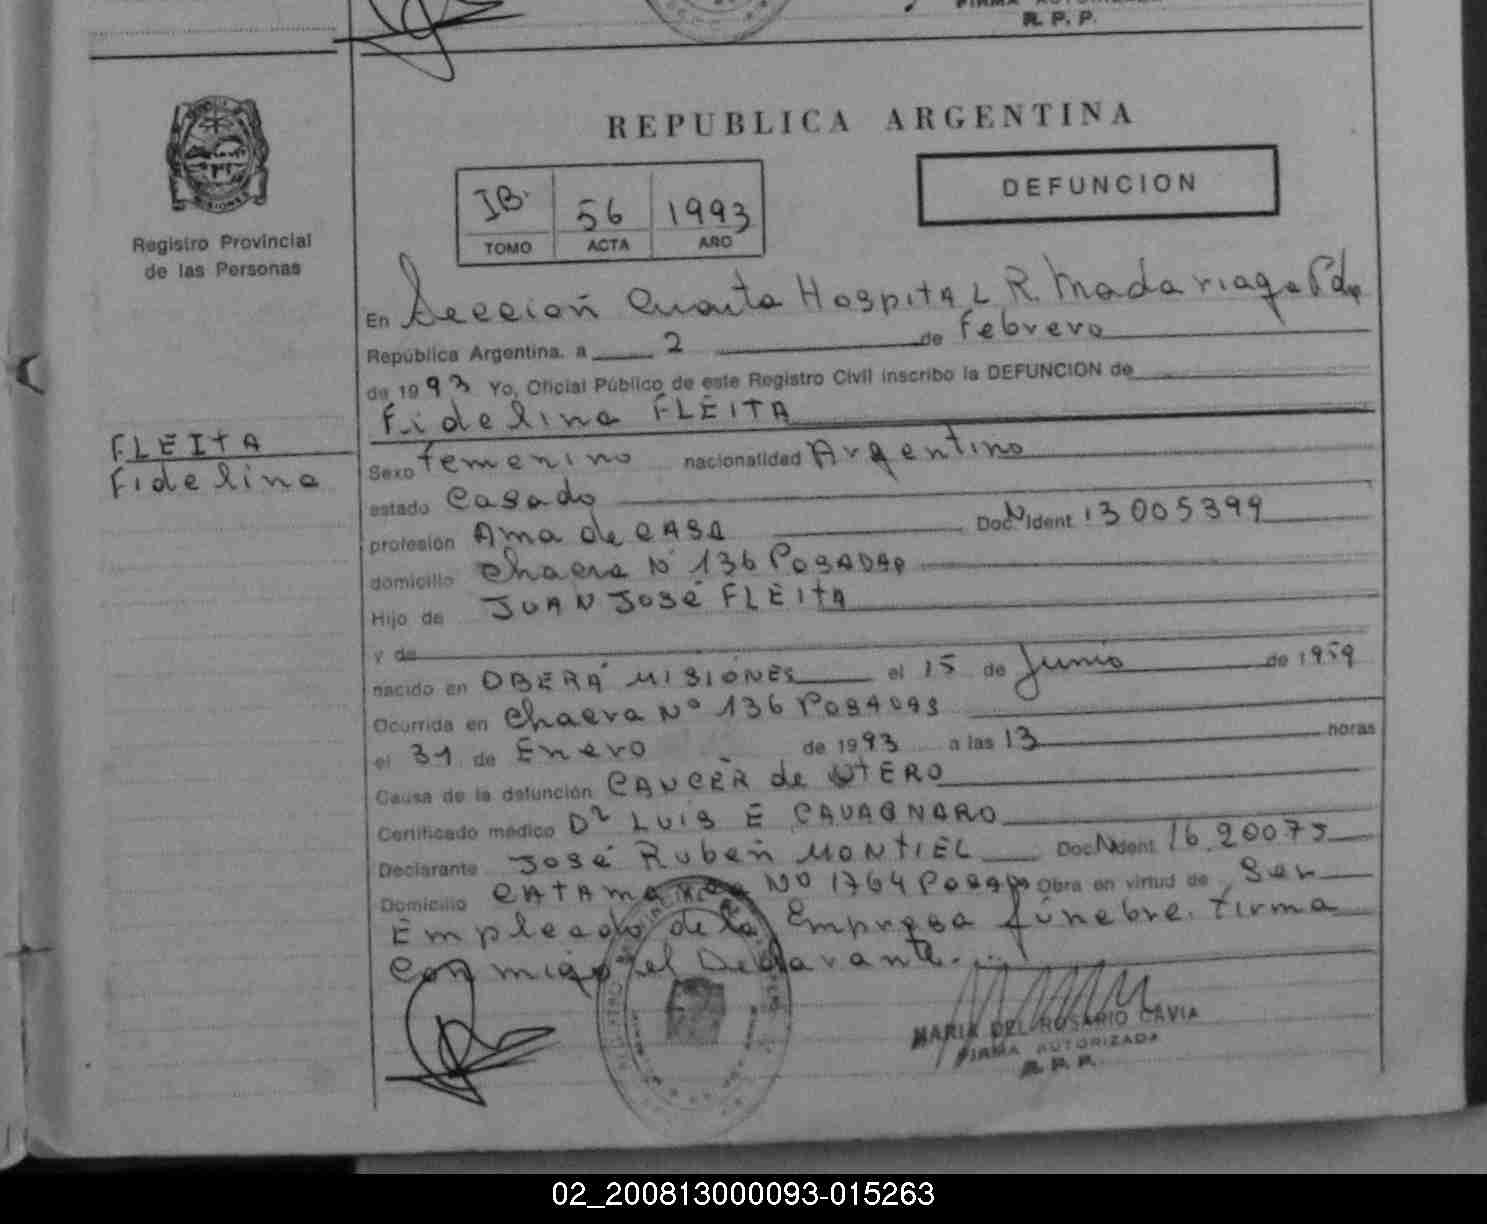 R. P. P.
REPUBLICA ARGENTINA
IB. 56 1993
TOMO ACTA AÑO
DEFUNCION
MISIONES
Registro Provincial
de las Personas
En Sección Cuarta Hospital R. Madariaga Pdas
República Argentina, a 2 de Febrero
de 1993 Yo, Oficial Público de este Registro Civil inscribo la DEFUNCION de
Fidelina FLEITA
FLEITA
Fidelina
Sexo Femenino nacionalidad Argentino
estado Casado
profesión Ama de CASA Doc. N Ident 13005399
domicilio Chacra Nº 136 POSADAS
Hijo de JUAN JOSÉ FLEITA
y de
nacido en OBERA MISIONES el 15 de Junio de 1959
Ocurrida en Chacra Nº 136 POSADAS
el 31 de Enero de 1993 a las 13 horas
Causa de la defunción CANCER de UTERO
Certificado médico Dr LUIS E CAVAGNARO
Declarante José Ruben MONTIEL Doc. N Ident 16.20075
Domicilio CATAMARCA Nº 1764 POSADAS Obra en virtud de Ser
Empleado de la Empresa fúnebre. Firma
Conmigo el Declarante...
MARIA DEL ROSARIO CAVIA
FIRMA AUTORIZADA
R. P. P.
02_200813000093-015263